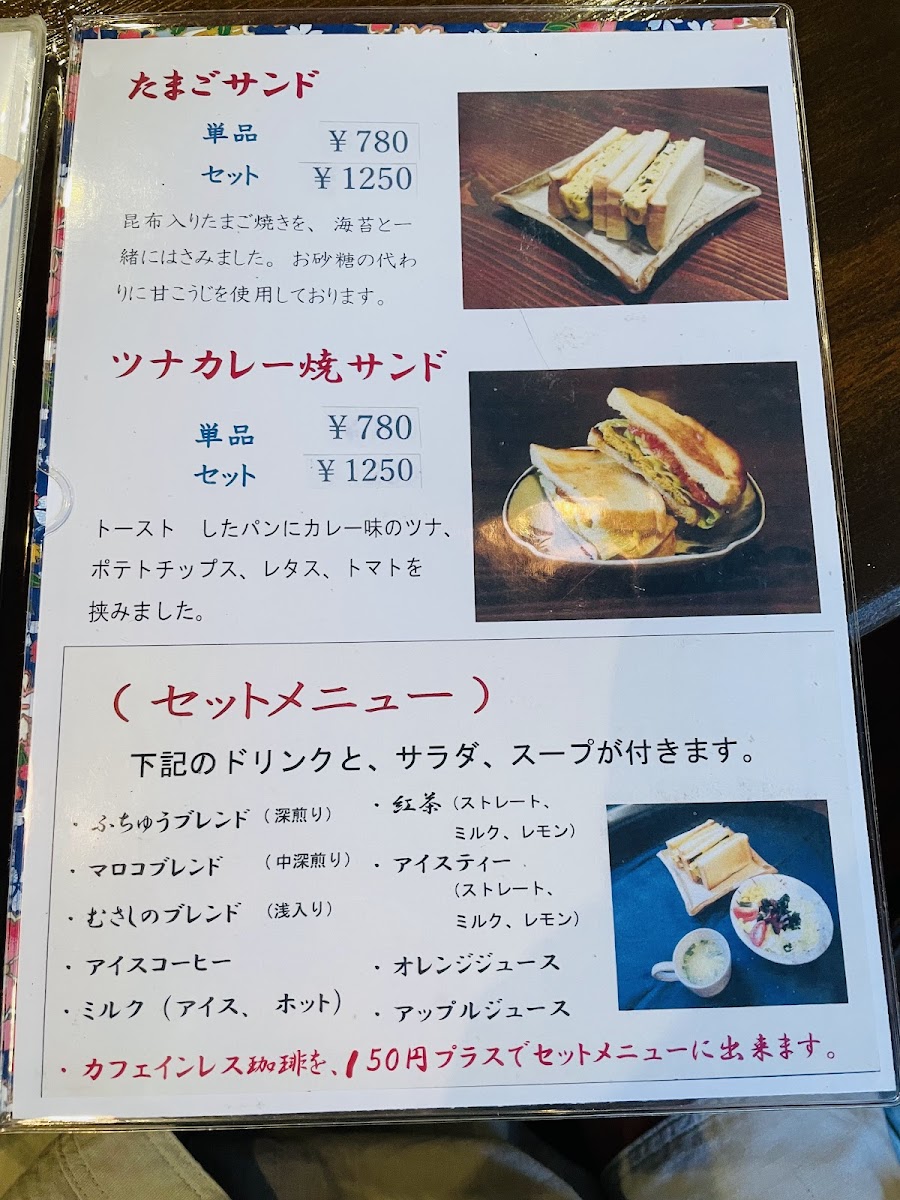 たまごサンド
単品 ¥780
セット ¥1250
昆布入りたまご焼きを、海苔と一
緒にはさみました。お砂糖の代わ
りに甘こうじを使用しております。
ツナカレー焼サンド
単品 ¥780
セット ¥1250
トースト したパンにカレー味のツナ、
ポテトチップス、レタス、トマトを
挟みました。
（セットメニュー）
下記のドリンクと、サラダ、スープが付きます。
・ふちゅうブレンド（深煎り）
・マロコブレンド（中深煎り）
・むさしのブレンド（浅入り）
・アイスコーヒー
・ミルク（アイス、ホット）
・紅茶（ストレート、
ミルク、レモン）
・アイスティー
（ストレート、
ミルク、レモン）
・オレンジジュース
・アップルジュース
・カフェインレス珈琲を、150円プラスでセットメニューに出来ます。